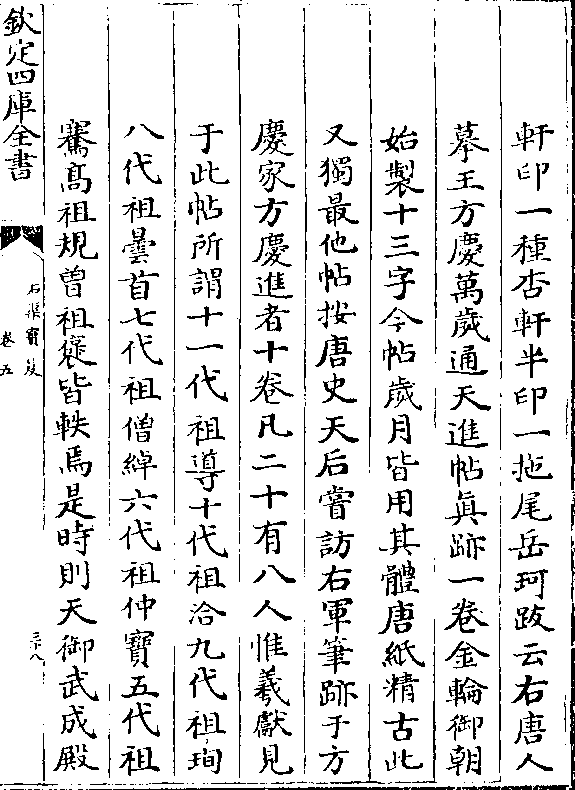 軒印一種杏軒半印一拖尾岳珂跋云右唐人
摹王方慶萬歲通天進帖真跡一卷金輪御朝
始製十三字今帖歲月皆用其體唐紙精古此
又獨最他帖按唐史天后嘗訪右軍筆跡于方
慶家方慶進者十卷凡二十有八人惟羲獻見
于此帖所謂十一代祖導十代祖洽九代祖珣
八代祖曇首七代祖僧綽六代祖仲寶五代祖
騫髙祖規曽祖襃皆軼焉是時則天御武成殿
欽定四庫全書
石渠寳笈
卷五
三十八